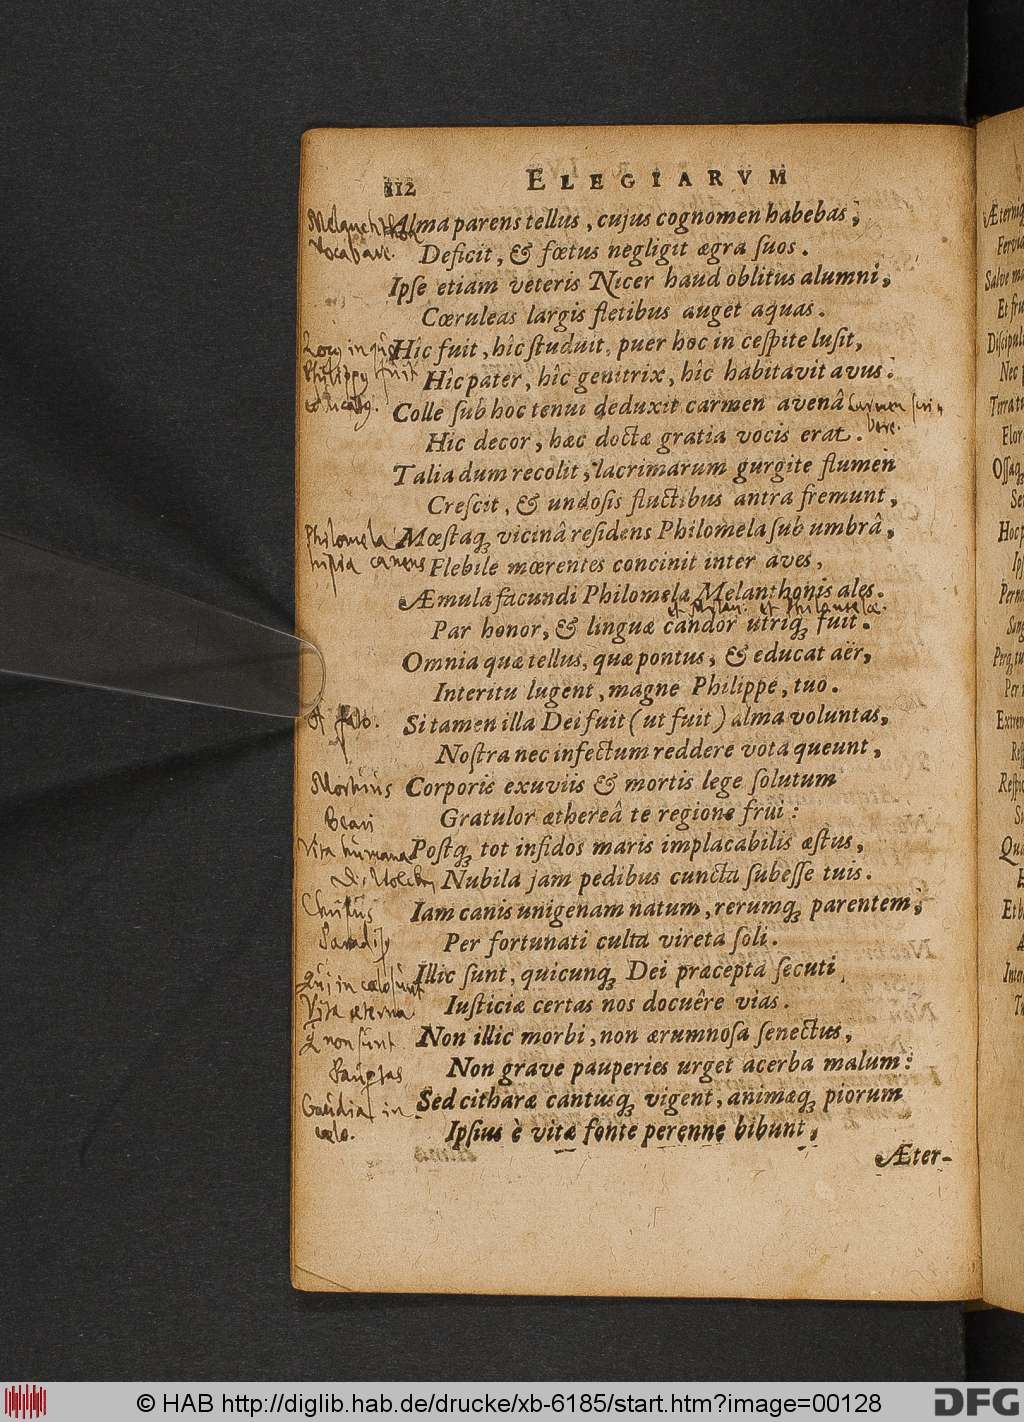 112 ELEGIARVM
Alma parens tellus, cujus cognomen habebas,
Deficit, & fœtus negligit ægra suos.
Ipſe etiam veteris Nicer haud oblitus alumni,
Cœruleas largis fletibus auget aquas.
Hic fuit, hîc ſtuduit, puer hoc in ceſpite luſit,
Hîc pater, hîc genitrix, hîc habitavit avus:
Colle ſub hoc tenui deduxit carmen avenâ
Hic decor, hæc doctæ gratia vocis erat.
Talia dum recolit, lacrimarum gurgite flumen
Creſcit, & undoſis fluctibus antra fremunt,
Mœſtaq; vicinâ reſidens Philomela ſub umbrâ,
Flebile mœrentes concinit inter aves,
Æmula facundi Philomela Melanthonis ales.
Par honor, & linguæ candor utriq; fuit.
Omnia quæ tellus, quæ pontus, & educat aër,
Interitu lugent, magne Philippe, tuo.
Si tamen illa Dei fuit (ut fuit) alma voluntas,
Noſtra nec infectum reddere vota queunt,
Corporis exuviis & mortis lege ſolutum
Gratulor æthereâ te regione frui:
Poſtq; tot infidos maris implacabilis æſtus,
Nubila jam pedibus cuncta ſubeſſe tuis.
Iam canis unigenam natum, rerumq; parentem,
Per fortunati culta vireta ſoli.
Illic ſunt, quicunq; Dei præcepta ſecuti
Iuſticiæ certas nos docuêre vias.
Non illic morbi, non ærumnoſa ſenectus,
Non grave pauperies urget acerba malum:
Sed citharæ cantusq; vigent, animæq; piorum
Ipſius è vitæ fonte perenne bibunt,
Æter-
Philomela
Mortuus
Beari
Vita humana
Christus
Qui in cælo sunt
Vita æterna
Gaudia in
cælo.
© HAB http://diglib.hab.de/drucke/xb-6185/start.htm?image=00128
DFG